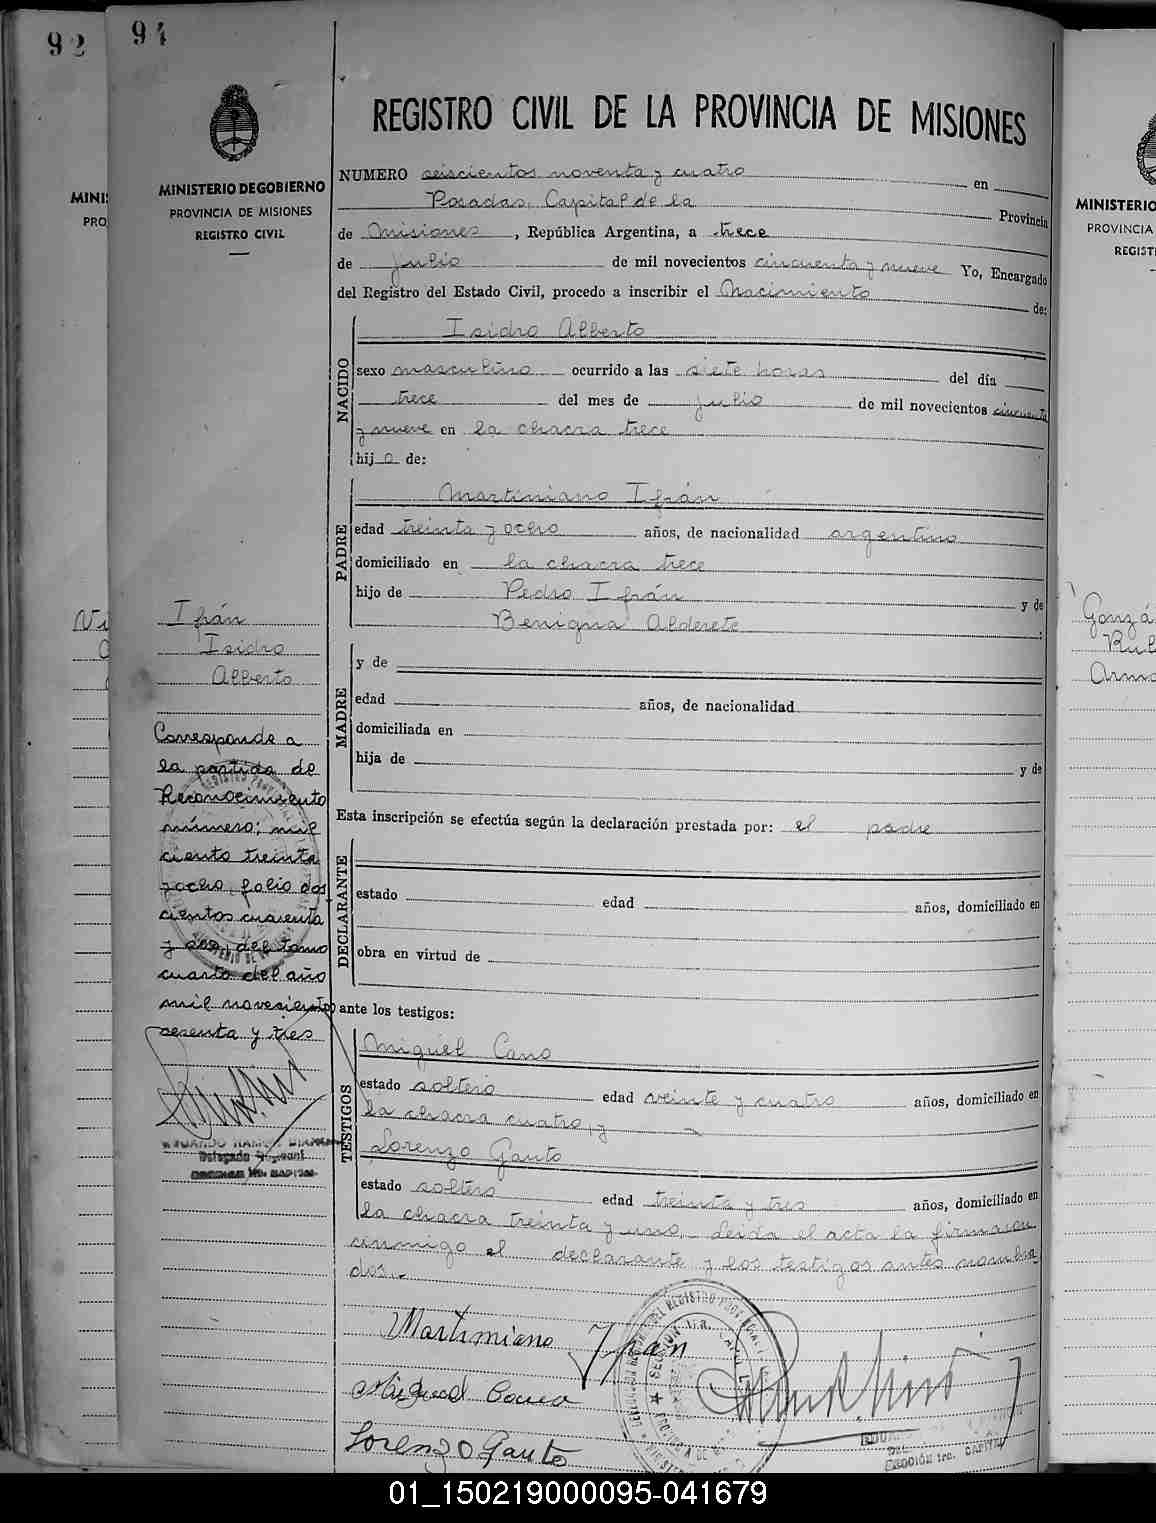 92
94
MINISTERIO DE GOBIERNO
PROVINCIA DE MISIONES
REGISTRO CIVIL
REGISTRO CIVIL DE LA PROVINCIA DE MISIONES
NUMERO seiscientos noventa y cuatro en
Posadas, Capital de la Provincia
de Misiones, República Argentina, a trece
de julio de mil novecientos cincuenta y nueve Yo, Encargado
del Registro del Estado Civil, procedo a inscribir el Nacimiento de:
NACIDO
Isidro Alberto
sexo masculino ocurrido a las siete horas del día
trece del mes de julio de mil novecientos cincuenta
y nueve en la chacra trece
hijo de:
PADRE
Martiniano Ifrán
edad treinta y ocho años, de nacionalidad argentino
domiciliado en la chacra trece
hijo de Pedro Ifrán y de
Benigna Alderete
MADRE
y de
edad años, de nacionalidad
domiciliada en
hija de y de
Esta inscripción se efectúa según la declaración prestada por: el padre
DECLARANTE
estado edad años, domiciliado en
obra en virtud de
ante los testigos:
TESTIGOS
Miguel Cano
estado soltero edad veinte y cuatro años, domiciliado en
la chacra cuatro, y
Lorenzo Gauto
estado soltero edad treinta y tres años, domiciliado en
la chacra treinta y uno.- Leida el acta la firmaron
conmigo el declarante y los testigos antes nombra
dos.-
Martimiano Ifran
Miguel Cano
Lorenzo Gauto
Ifrán
Isidro
Alberto
Corresponde a
la partida de
Reconocimiento
número; mil
ciento treinta
y ocho, folio dos
cientos cuarenta
y dos, del tomo
cuarto del año
mil novecientos
sesenta y tres
MINISTERIO
PROVINCIA
REGIST
01_150219000095-041679